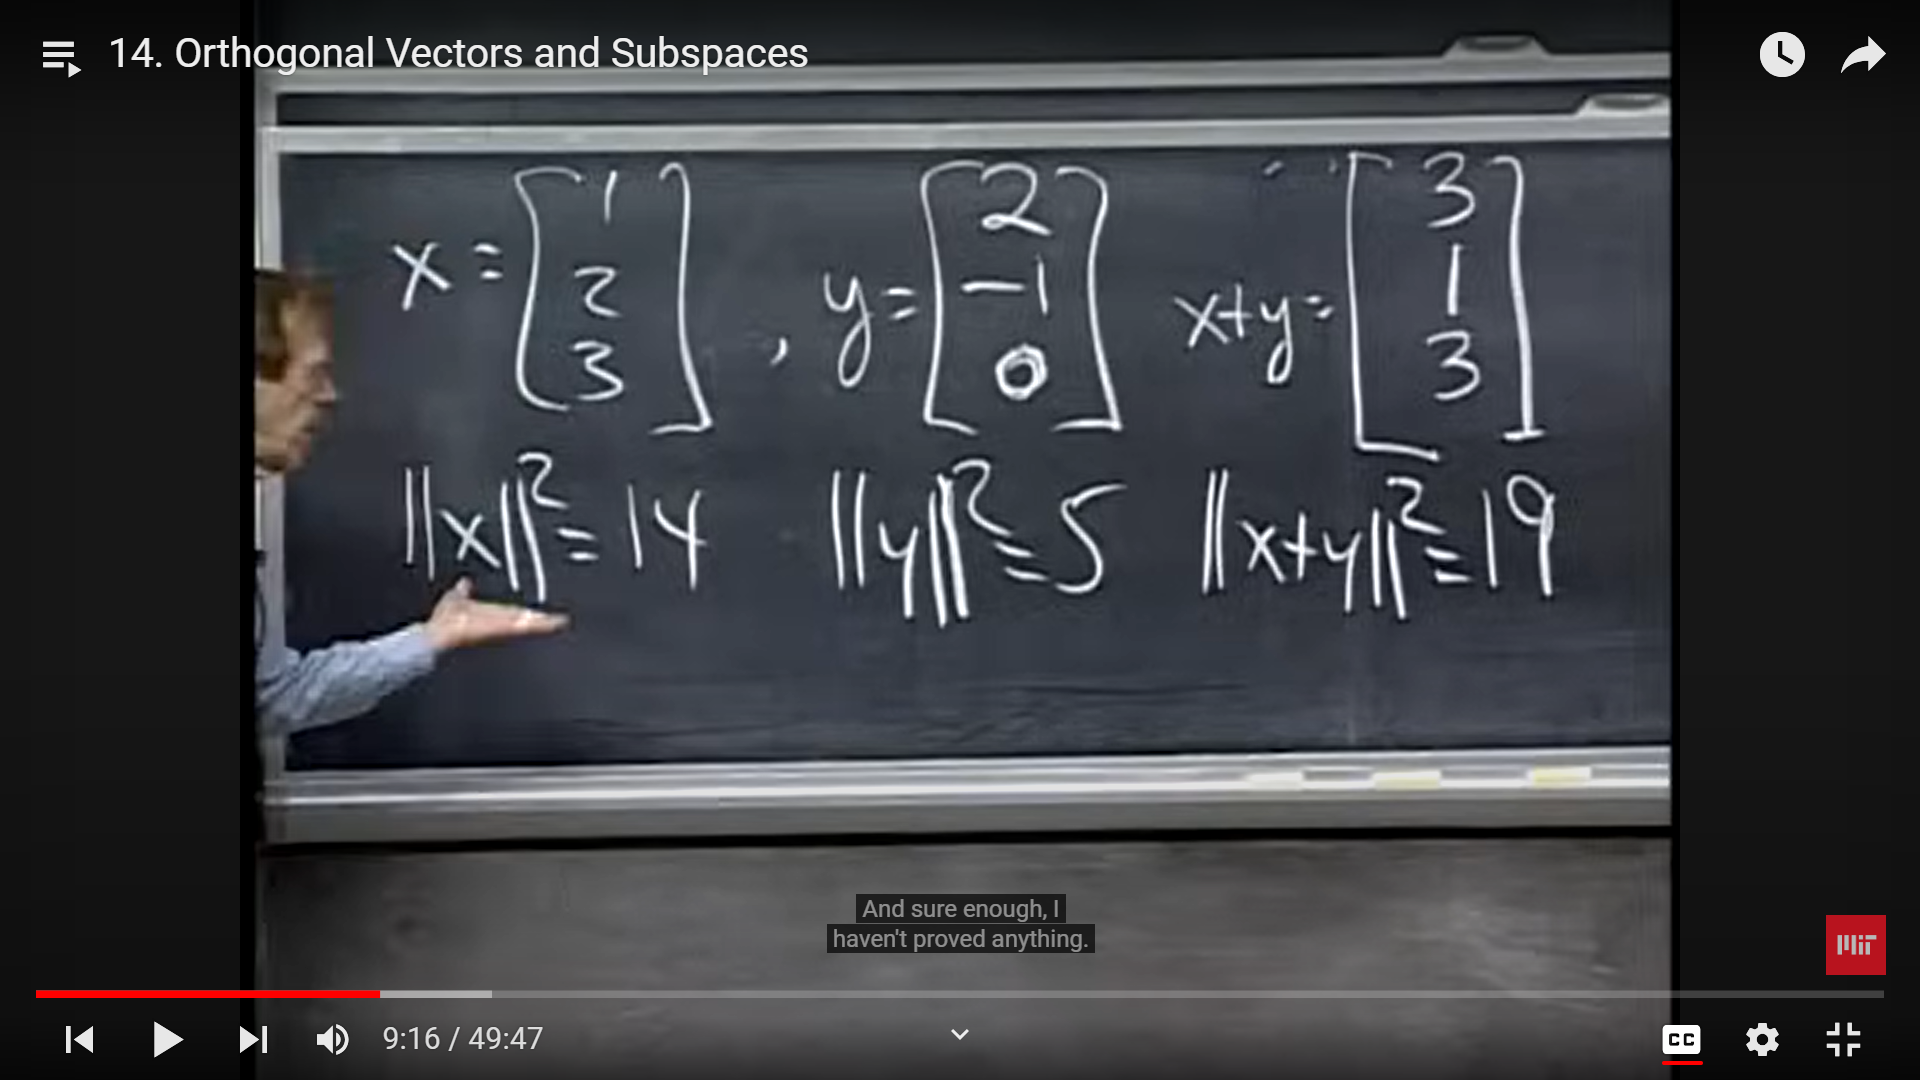 14. Orthogonal Vectors and Subspaces
x = [ 1 2 3 ] , y = [ 2 -1 0 ] x+y = [ 3 1 3 ]
||x||² = 14 ||y||² = 5 ||x+y||² = 19
And sure enough, I
haven't proved anything.
MIT
9:16 / 49:47
CC